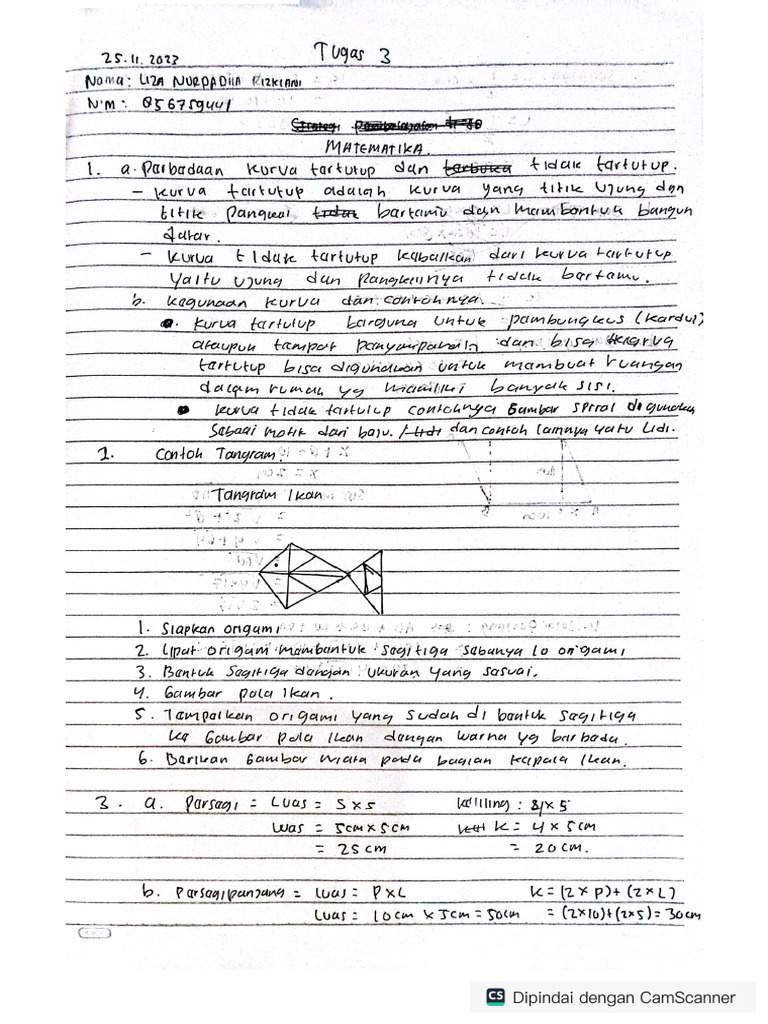 Tugas 3
25.11.2023
Nama: LIZA NURPADIIA RIZKIANI
NIM: 856759441
MATEMATIKA.
1. a. Parbadaan kurva tartutup dan tarbuka tidak tartutup.
- kurva tartutup adalah kurva yang titik ujung dan
titik pangkal tidak bartamu dgn mambantuk bangun
datar.
- kurva tidak tartutup kabalikan dari kurva tartutup
yaitu ujung dan pangkalnya tidak bartamu.
b. kagunaan kurva dan contohnya.
• kurva tartutup barguna untuk pambungkus (kardus)
ataupun tampat panyimpanan dan bisa kurva
tartutup bisa digunakan untuk mambuat ruangan
dalam rumah yg mamiliki banyak sisi.
• kurva tidak tartutup contohnya Gambar spiral digunakan
Sabagi motik dari baju. / Lidi dan contoh lainnya yaitu Lidi.
2. Contoh Tangram.
Tangram Ikan
1. Siapkan origami
2. Lipat origami mambantuk sagitiga sabanya 10 origami
3. Bantuk Sagitiga dangan ukuran yang sasuai.
4. Gambar pola Ikan.
5. Tampalkan origami yang sudah di bantuk sagitiga
ka Gambar pola Ikan dangan warna yg barbada.
6. Barikan Gambar mata pada bagian kapala Ikan.
3. a. Parsagi = Luas = S x S Kalilling : 4 x 5
Luas = 5cm x 5cm K = 4 x 5cm
= 25 cm = 20 cm.
b. Parsagipanjang = Luas = P x L K = (2 x P) + (2 x L)
Luas = 10 cm x 5cm = 50cm = (2x10)+(2x5) = 30cm
CS Dipindai dengan CamScanner